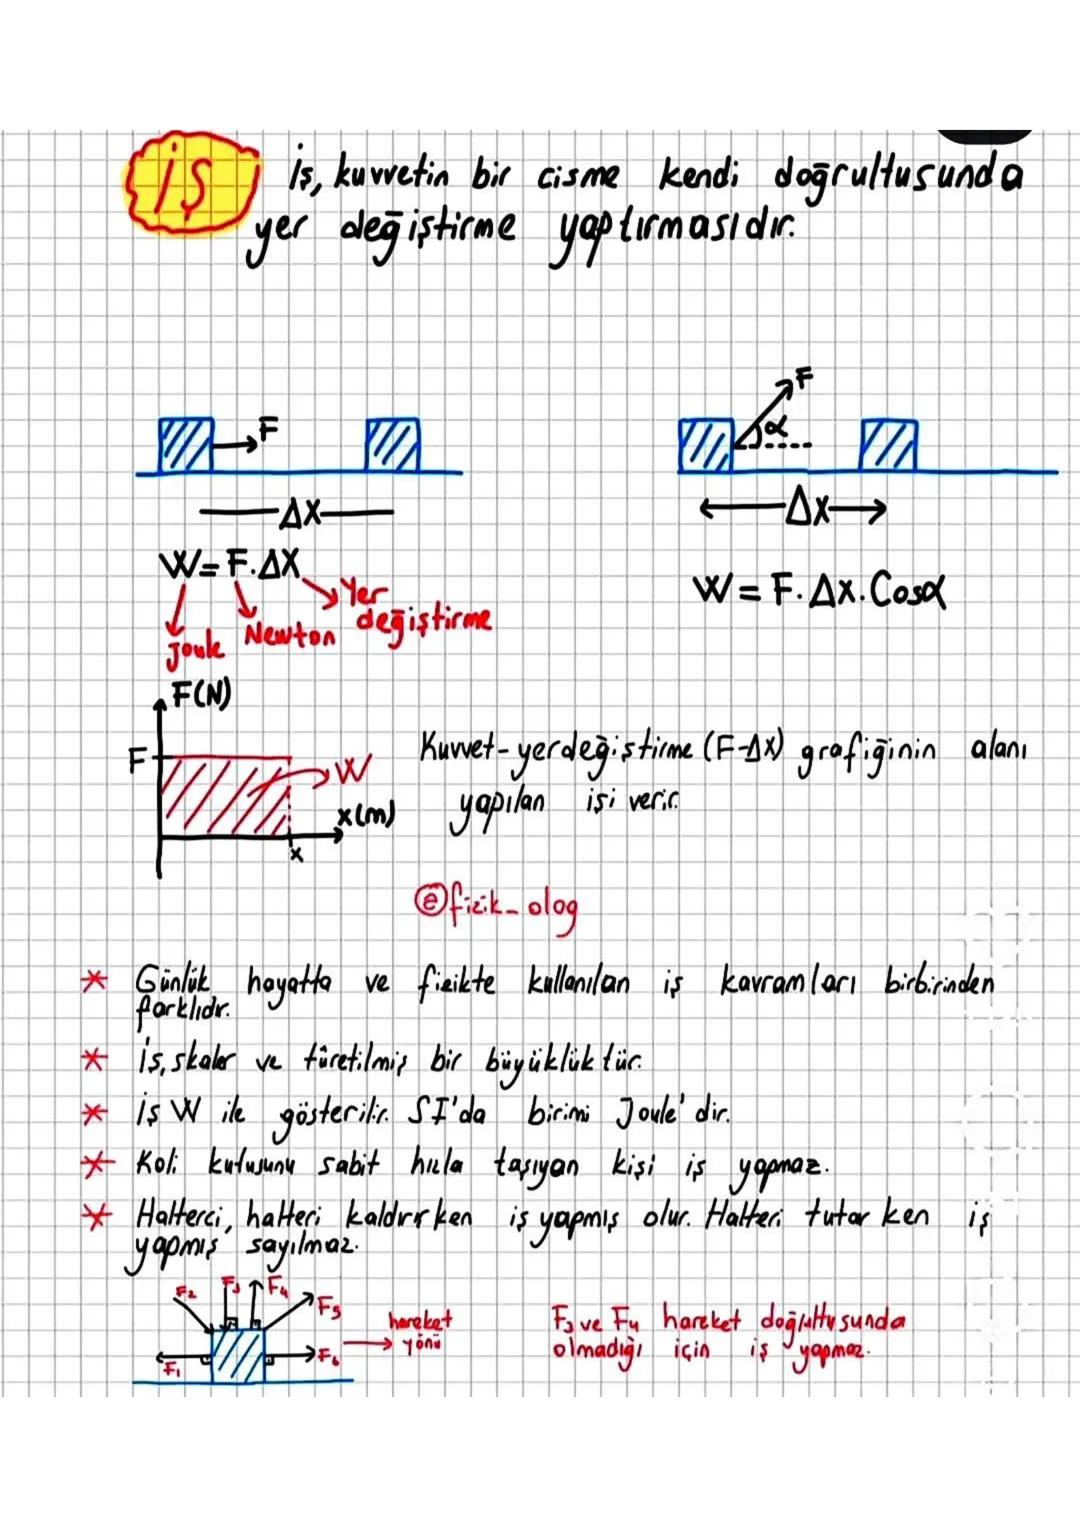 İŞ
İş, kuvvetin bir cisme kendi doğrultusunda
yer değiştirme yaptırmasıdır.
F
F
α
ΔX
Δx
W=F.ΔX
Yer
değiştirme
Joule
Newton
W=F.Δx.Cosα
F(N)
F
W
x(m)
x
Kuvvet-yerdeğiştirme (F-Δx) grafiğinin alanı
yapılan işi verir.
@fizik_olog
* Günlük hayatta ve fizikte kullanılan iş kavramları birbirinden
farklıdır.
* İş, skaler ve türetilmiş bir büyüklüktür.
* İş W ile gösterilir. SI'da birimi Joule'dir.
* Koli kutusunu sabit hızla taşıyan kişi iş yapmaz.
* Halterci, halteri kaldırırken iş yapmış olur. Halteri tutarken iş
yapmış sayılmaz.
F₂ F₃ F₄ F₅
F₁ F₆
hareket
yönü
F₃ ve F₄ hareket doğrultusunda
olmadığı için iş yapmaz.